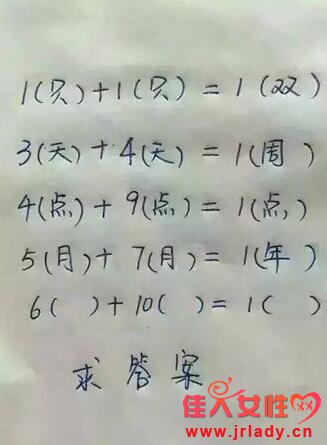 1(只)+1(只)=1(双)
3(天)+4(天)=1(周)
4(点)+9(点)=1(点)
5(月)+7(月)=1(年)
6( )+10( )=1( )
求答案
佳人女性网
www.jrlady.com